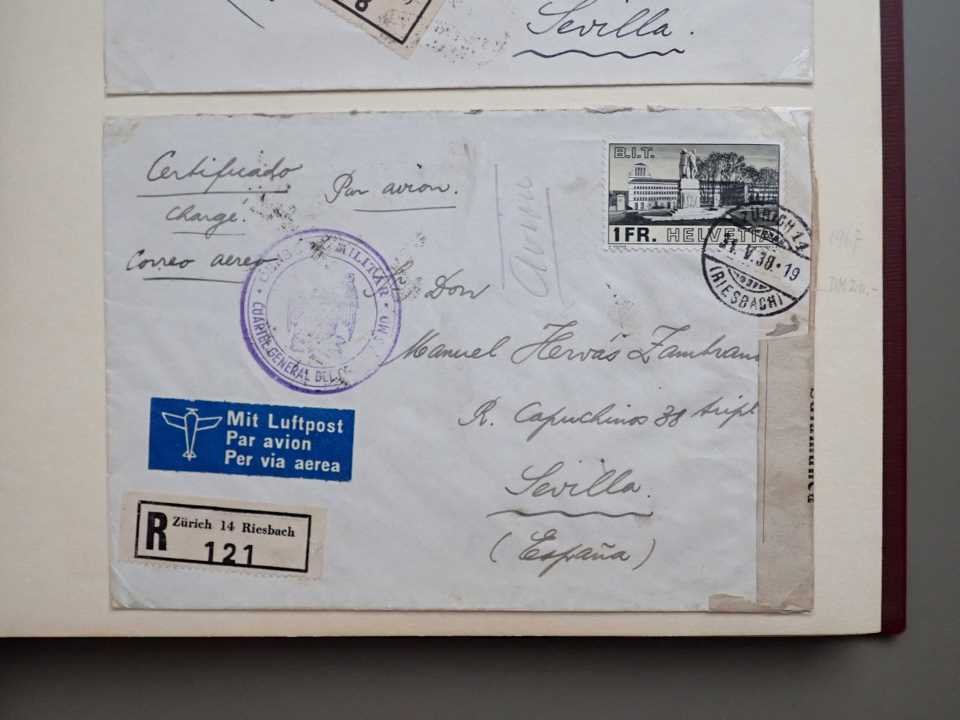 8
Sevilla.
Certificado
Par avion.
chargé.
Correo aereo
avion
B.I.T.
1 FR. HELVETIA
ZÜRICH 14
31. V. 38 · 19
(RIESBACH)
MILITAR
CUARTEL GENERAL DEL
Don
Manuel Hervás Zambran
R. Capuchinos 38
Sevilla.
(España)
Mit Luftpost
Par avion
Per via aerea
R Zürich 14 Riesbach
121